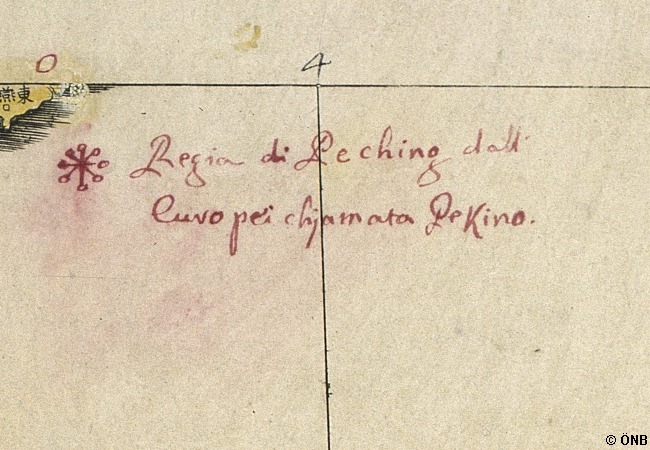 0 4
東
Regia di Peching dall'
Europei chjamata Pekino.
© ÖNB